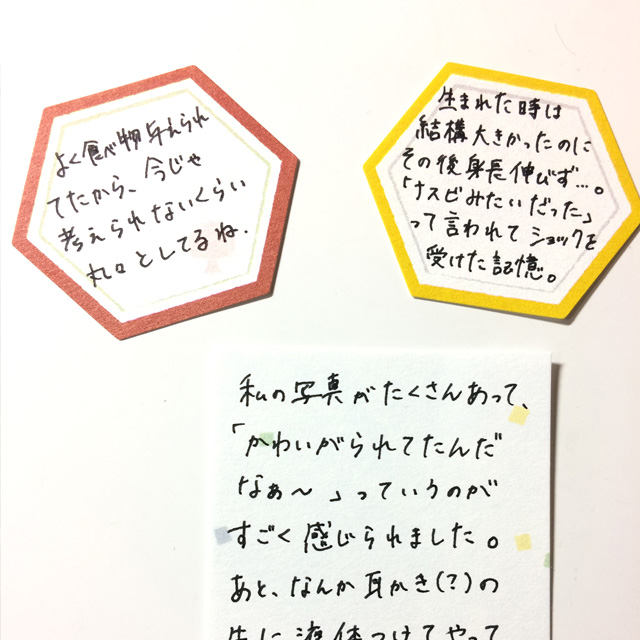 よく食べ物与えられ
てたから、今じゃ
考えられないくらい
丸々としてるね.
生まれた時は
結構大きかったのに
その後身長伸びず…。
「ナスビみたいだった」
って言われてショックを
受けた記憶。
私の写真がたくさんあって、
「かわいがられてたんだ
なぁ〜」っていうのが
すごく感じられました。
あと、なんか耳かき(?)の
先に液体つけてやって